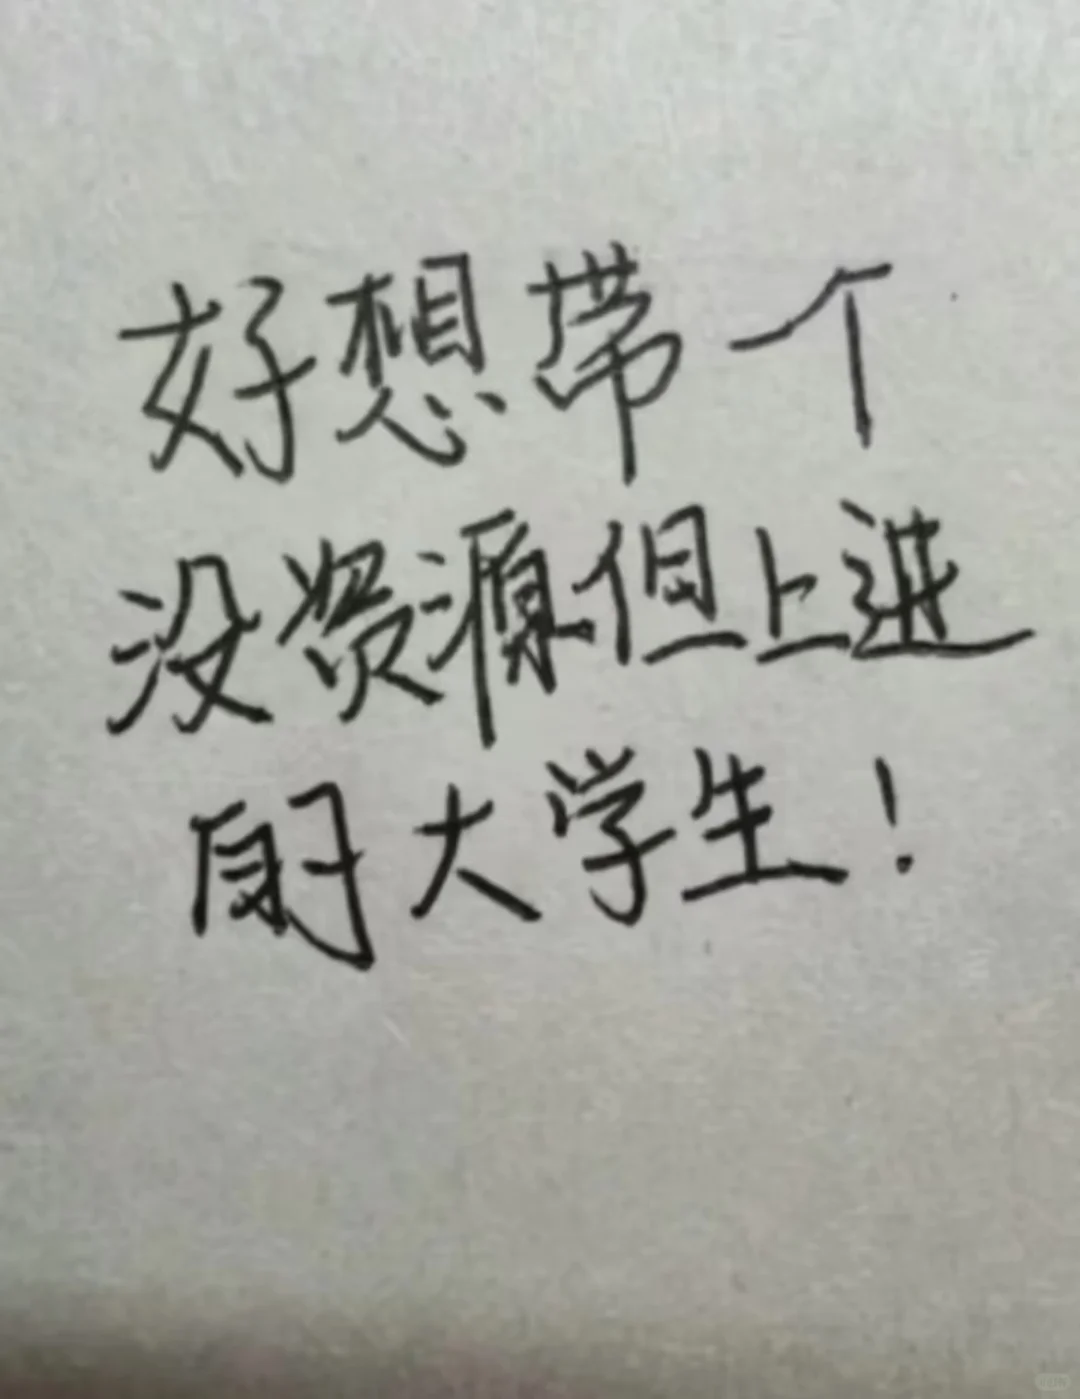 好想带一个
没资源但上进
的大学生！